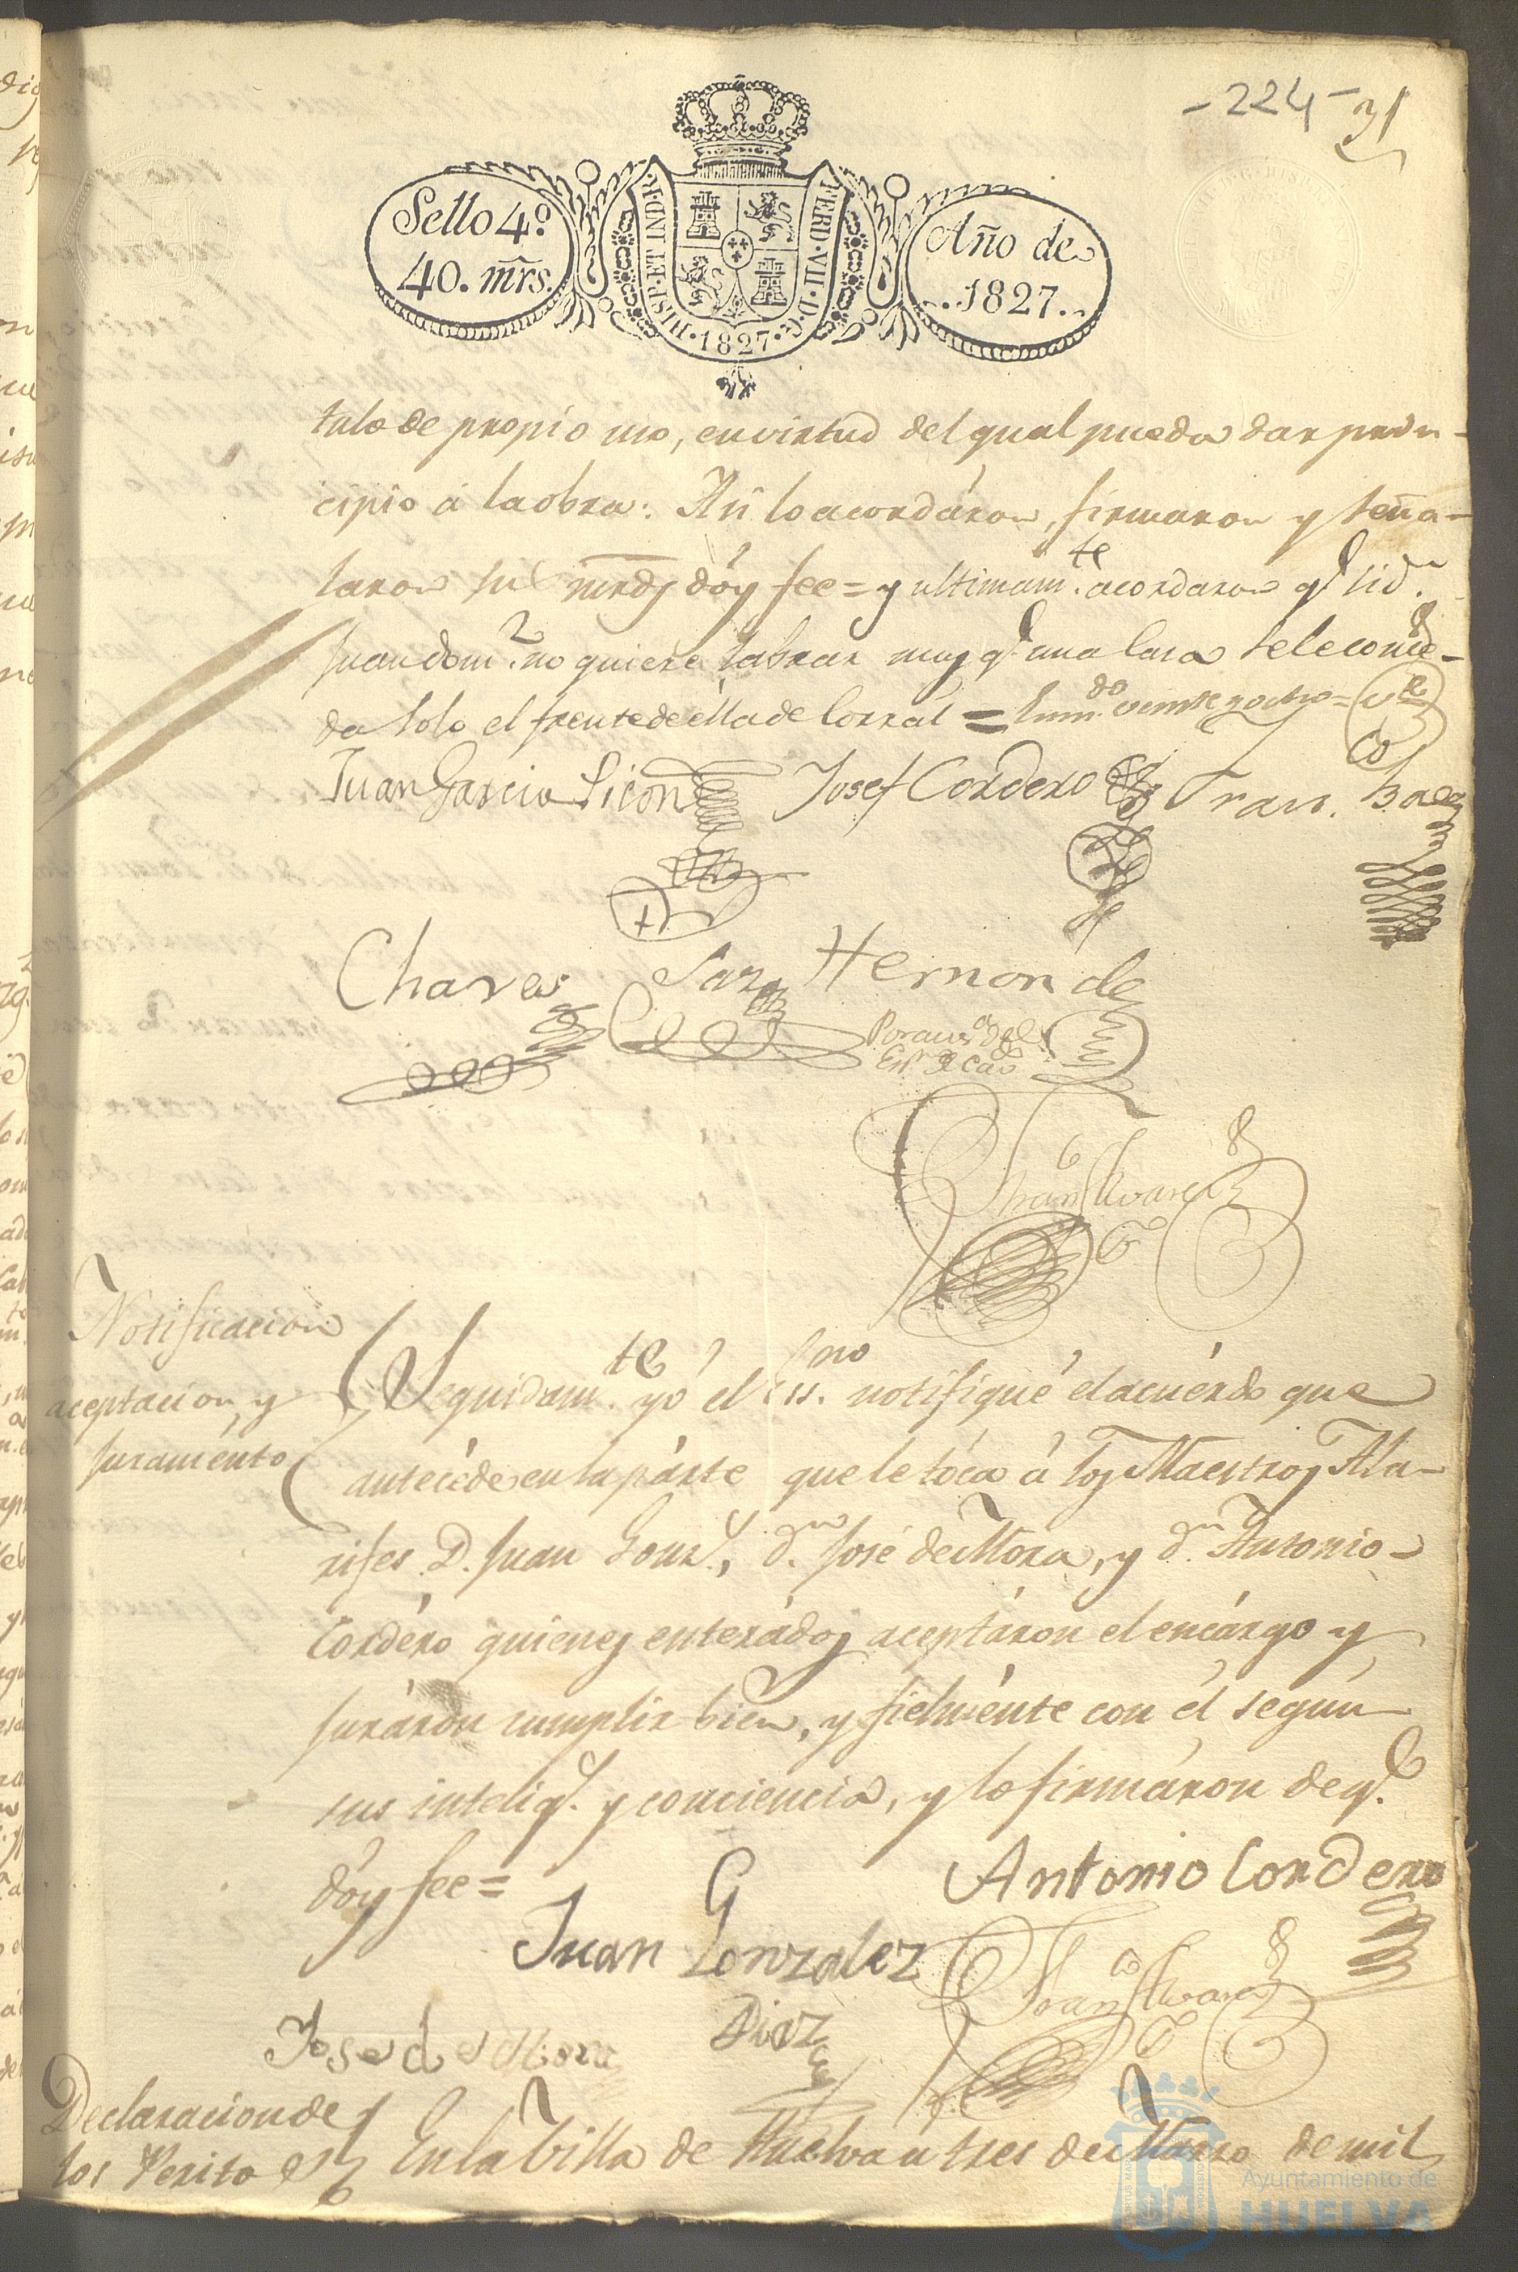 - 224 - 31
Sello 4º
40. mrs.
HISP. ET IND. R.
FERD. VII. D. G.
.1827.
Año de
1827.
tulo de propio uso, en virtud del qual pueda dar prin-
cipio á la obra: Asi lo acordáron, firmaron y seña-
laron sus mrds dóy fee = y ultimamte. acordaron q. si dn.
Juan Domz. no quiere labrar mas q. una casa se le conce-
da solo el frente de élla de corral = Enmdo. veinte y ocho =
Juan Garcia Picon Josef Cordero Fran. Baez
Chaves Saez Hernandez
Por aus.a del
Esno. de Cavdo.
Fran.co Alvarez
Notificacion
aceptacion, y
juramento
Seguidamte. yó el Essno. notifiqué el acuérdo que
antecéde en la párte que le tóca á los Maestros Ala-
rifes D. Juan Gonz., dn. José de Mora, y dn. Antonio
Cordéro quienes enterádos aceptáron el encárgo y
juráron cumplir bien, y fielménte con él segun
sus inteligª. y conciencia, y lo firmáron de q.
dóy fee =
Antonio Cordero
Juan Gonzalez
Diaz
Fran.co Alvarez
Jose de Mora
Declaracion de
los Peritos
En la Villa de Huelva á tres de Marzo de mil
Ayuntamiento de
HUELVA